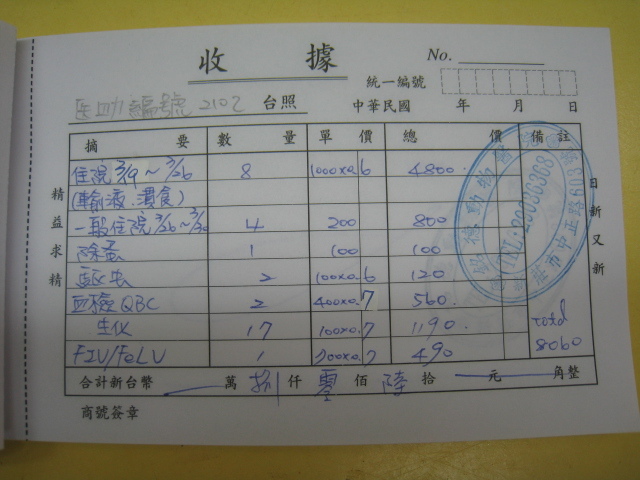 收 據
No.
統一編號
醫助編號 2102 台照 中華民國 年 月 日
摘要 數量 單價 總價 備註
住院 3/19~3/26 8 1000x0.6 4800.
(輸液.灌食)
一般住院 3/26~3/30 4 200 800
除蚤 1 100 100
驅虫 2 100x0.6 120
血檢QBC 2 400x0.7 560.
生化 17 100x0.7 1190.
FIV/FeLV 1 700x0.7 490
Total
8060
合計新台幣 萬 捌 仟 零 佰 陸 拾 元 角整
商號簽章
精益求精
日新又新